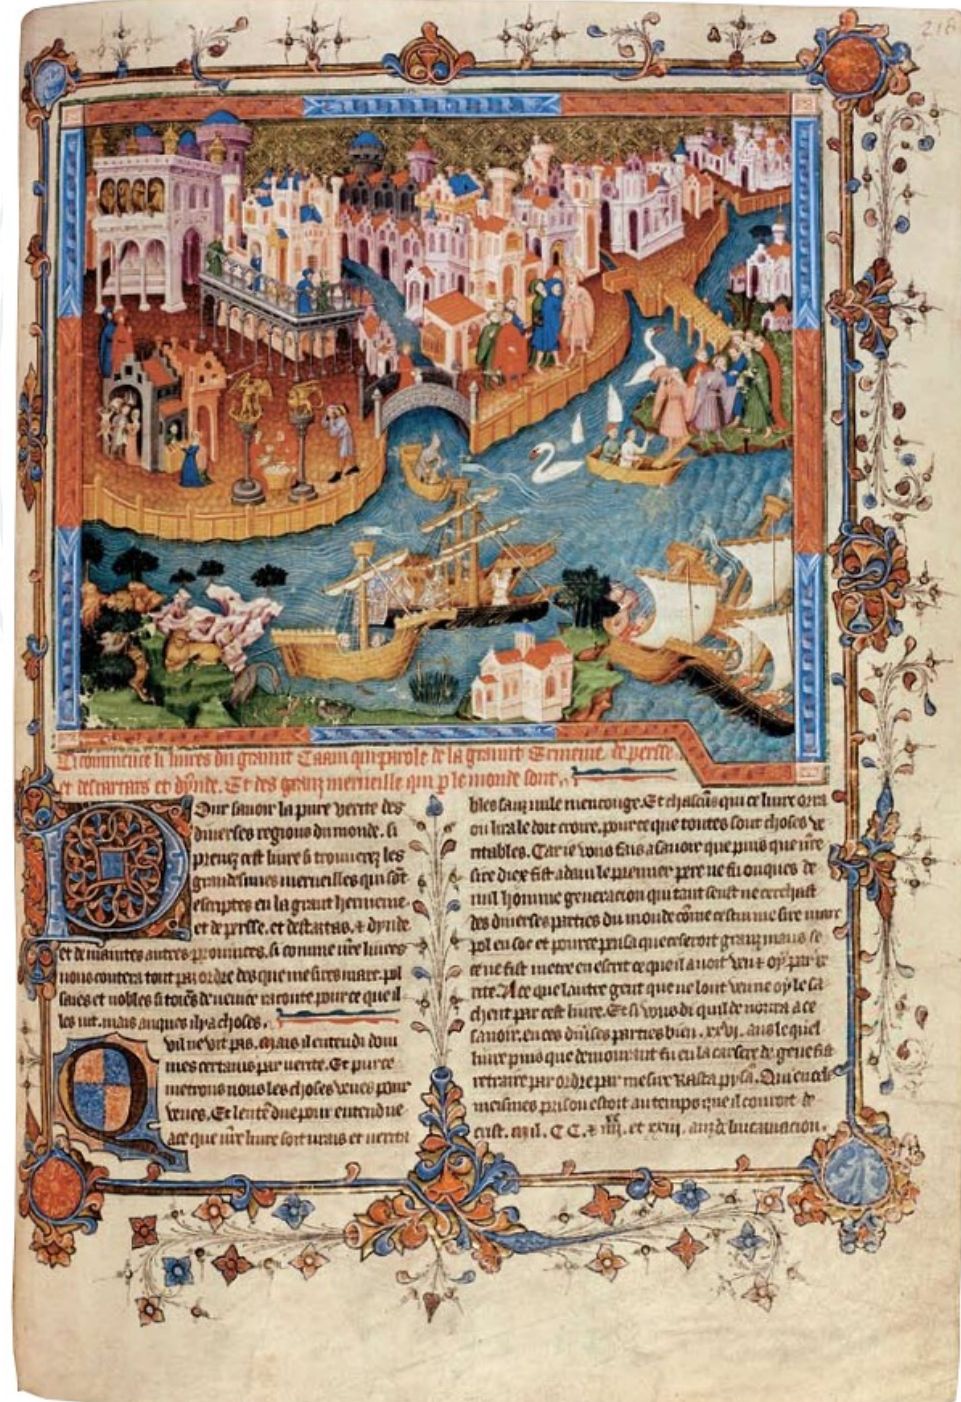 218
Ci commence li liures du graunt Caam qui parole de la graunt Ermenie. de persse.
et des tartars et dynde. Et des granz merueille qui p le monde sont.
Pour sauoir la pure verite des
diuerses regions du monde. si
prenez cest liure si trouuerez les
grandesimes merueilles qui sōt
escriptes en la grant hermenie.
et de persse. et des tatars. & dynde
et de maintes autres prouinces. si comme nr̄e liures
nous contera tout par ordre des que me sires marc pol
saies et nobles de venice raconte pour ce que il
les vit. mais auques il y a choses.
Quil ne vit pas. Mais il entendi dom
mes certains par verite. Et pur ce
metrons nous les choses veues pour
veues. Et lentēdue pour entendue
a ce que nr̄e liure soit vrais et verita
bles sanz nule mencouge. Et chascūs qui ce liure orra
ou lira le doit croire. pour ce que toutes sont choses ve
ritables. Car ie vous fais a sauoir que puis que nr̄e
sire diex fist adam le premier pere ne fu onques de
nul homme generacion qui tant seust ne cerchast
des diuerses parties du monde cōme cestui me sire marc
pol en soc et pource pensa que ce seroit granz maus se
ce ne fist metre en escrit ce que il auoit veu & oy par ve
rite. A ce que lautre gent que ne lont veue oy le sa
chent par cest liure. Et si vous di quil demora a ce
sauoir. en ces diūses parties bien .xxvi. ans le quel
liure puis que demourant fu en la carsere de gene fist
retraire par ordre par mesire Rasta pysā. Qui en cele
meismes prison estoit au temps que il couroit de
crist. mil. C C. & iiii. et xviii. anz de lincarnacion.